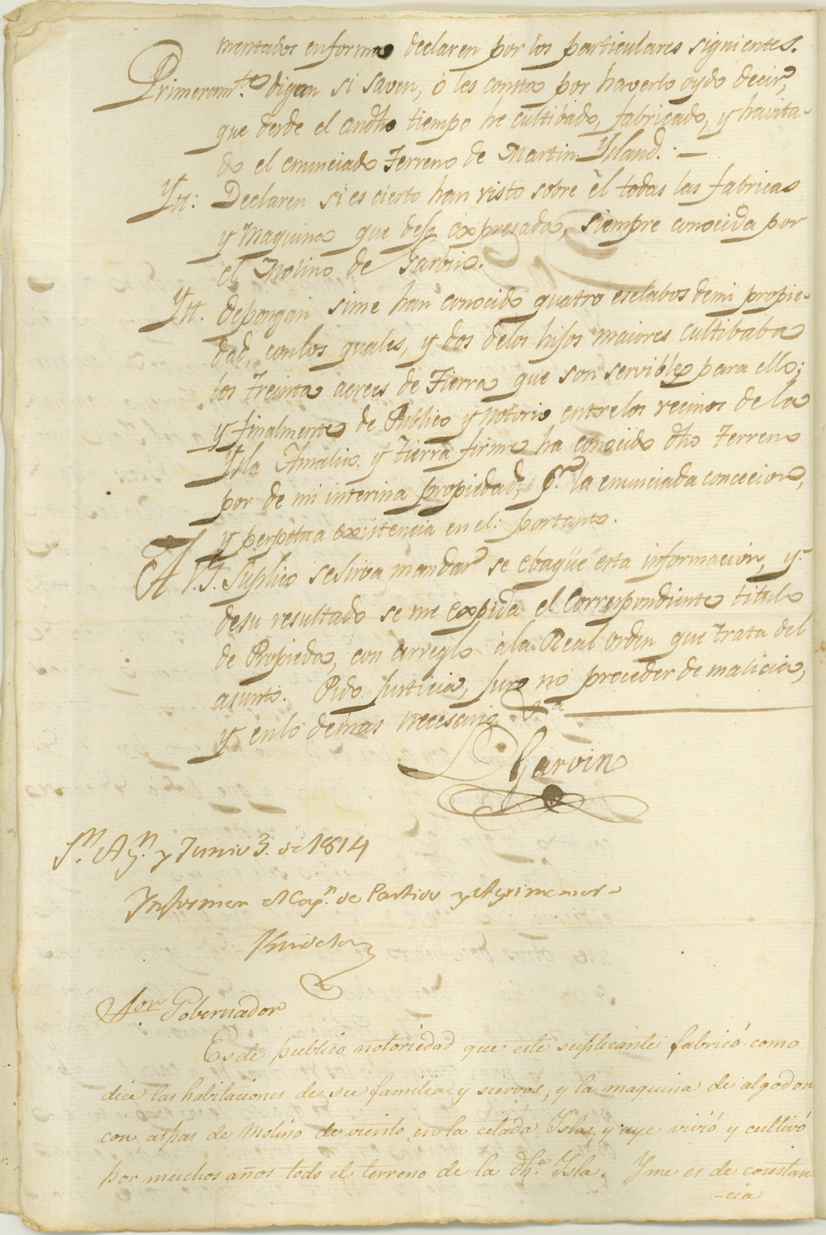 mentados enforma declaren por los particulares siguientes.
Primeramte. digan si saven, ò les consta por haverlo oydo decir,
que desde el andho tiempo he cultibado, fabricado, y havita-
do el enunciado Terreno de Martin Ysland. —
Ytt: Declaren si es cierto han visto sobre èl todas las fabricas
y Maquina que dejo expresada, siempre conocida por
el Molino de Garvin.
Ytt. depongan sime han conocido quatro esclabos demi propie-
dad, conlos quales, y dos delos hijos maiores cultibaba
los Treinta acres de Tierra que son servibles para ello;
y finalmente de Publico y notorio entrelos vecinos de la
Ysla Amalia, y Tierra firme ha conocido dho Terreno
por de mi interina propiedad, pr. la enunciada concecion,
y perpetua existencia en el: portanto.
A V.S. Suplico sesirva mandar se ebaqüe esta informacion, y
desu resultado se me expida el Correspondiente titulo
de Propieda, con arreglo àla Real orden que trata del
asunto. Pido Justicia, Juro no proceder de malicia,
y enlo demas necesario &a
D Garvin
Sn. Agn. y Junio 3. de 1814
Informen el Capn. de Partido y Agrimensor
Kindelan
Sor. Gobernador
Es de publica notoriedad que este suplicante fabricó como
dice las habitaciones de su familia y siervos, y la maquina de algodon
con aspas de Molino de viento, en la citada Isla, y aye vivió y cultivó
por muchos años todo el terreno de la dha. Isla. Y me es de constan
-cia